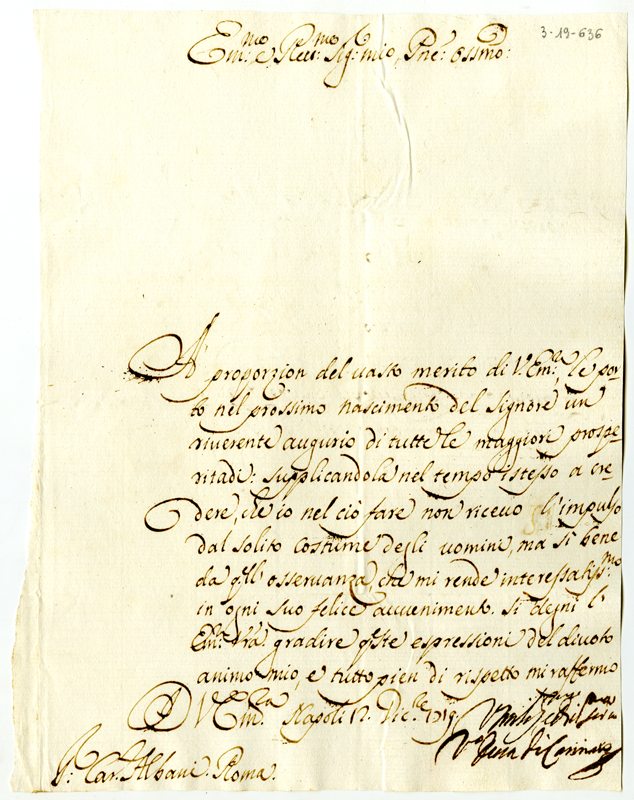 3-19-636
Em:mo e Reu:mo Sig: mio, Pne: Ossmo:
A' proporzion del uasto merito di V. Em:za le por-
to nel prossimo nascimento del Signore un
riuerente augurio di tutte le maggiori prospe-
ritadi: supplicandola nel tempo istesso a cre-
dere, che io nel ciò fare non riceuo l'impulso
dal solito costume degli uomini, ma si bene
da q.ll' osseruanza, che mi rende interessatiss:mo
in ogni suo felice auuenimento. Si degni l'
Em: Vra. gradire q.ste espressioni del diuoto
animo mio, e tutto pien di rispetto mi raffermo
D V. Em:za Napoli 12. Dic.bre 1719.
di
P: Car: Albani. Roma.